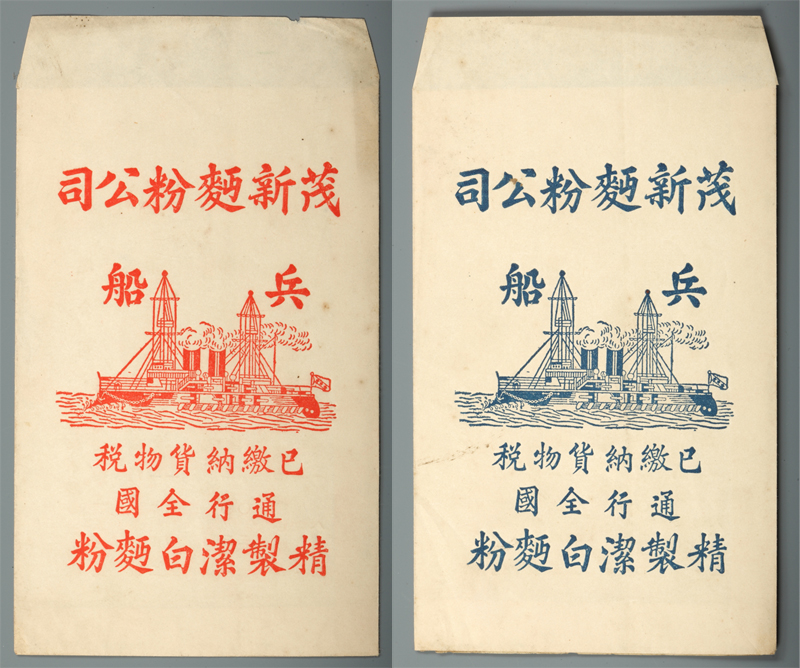 茂新麵粉公司
兵船
已繳納貨物稅
通行全國
精製潔白麵粉
茂新麵粉公司
兵船
已繳納貨物稅
通行全國
精製潔白麵粉